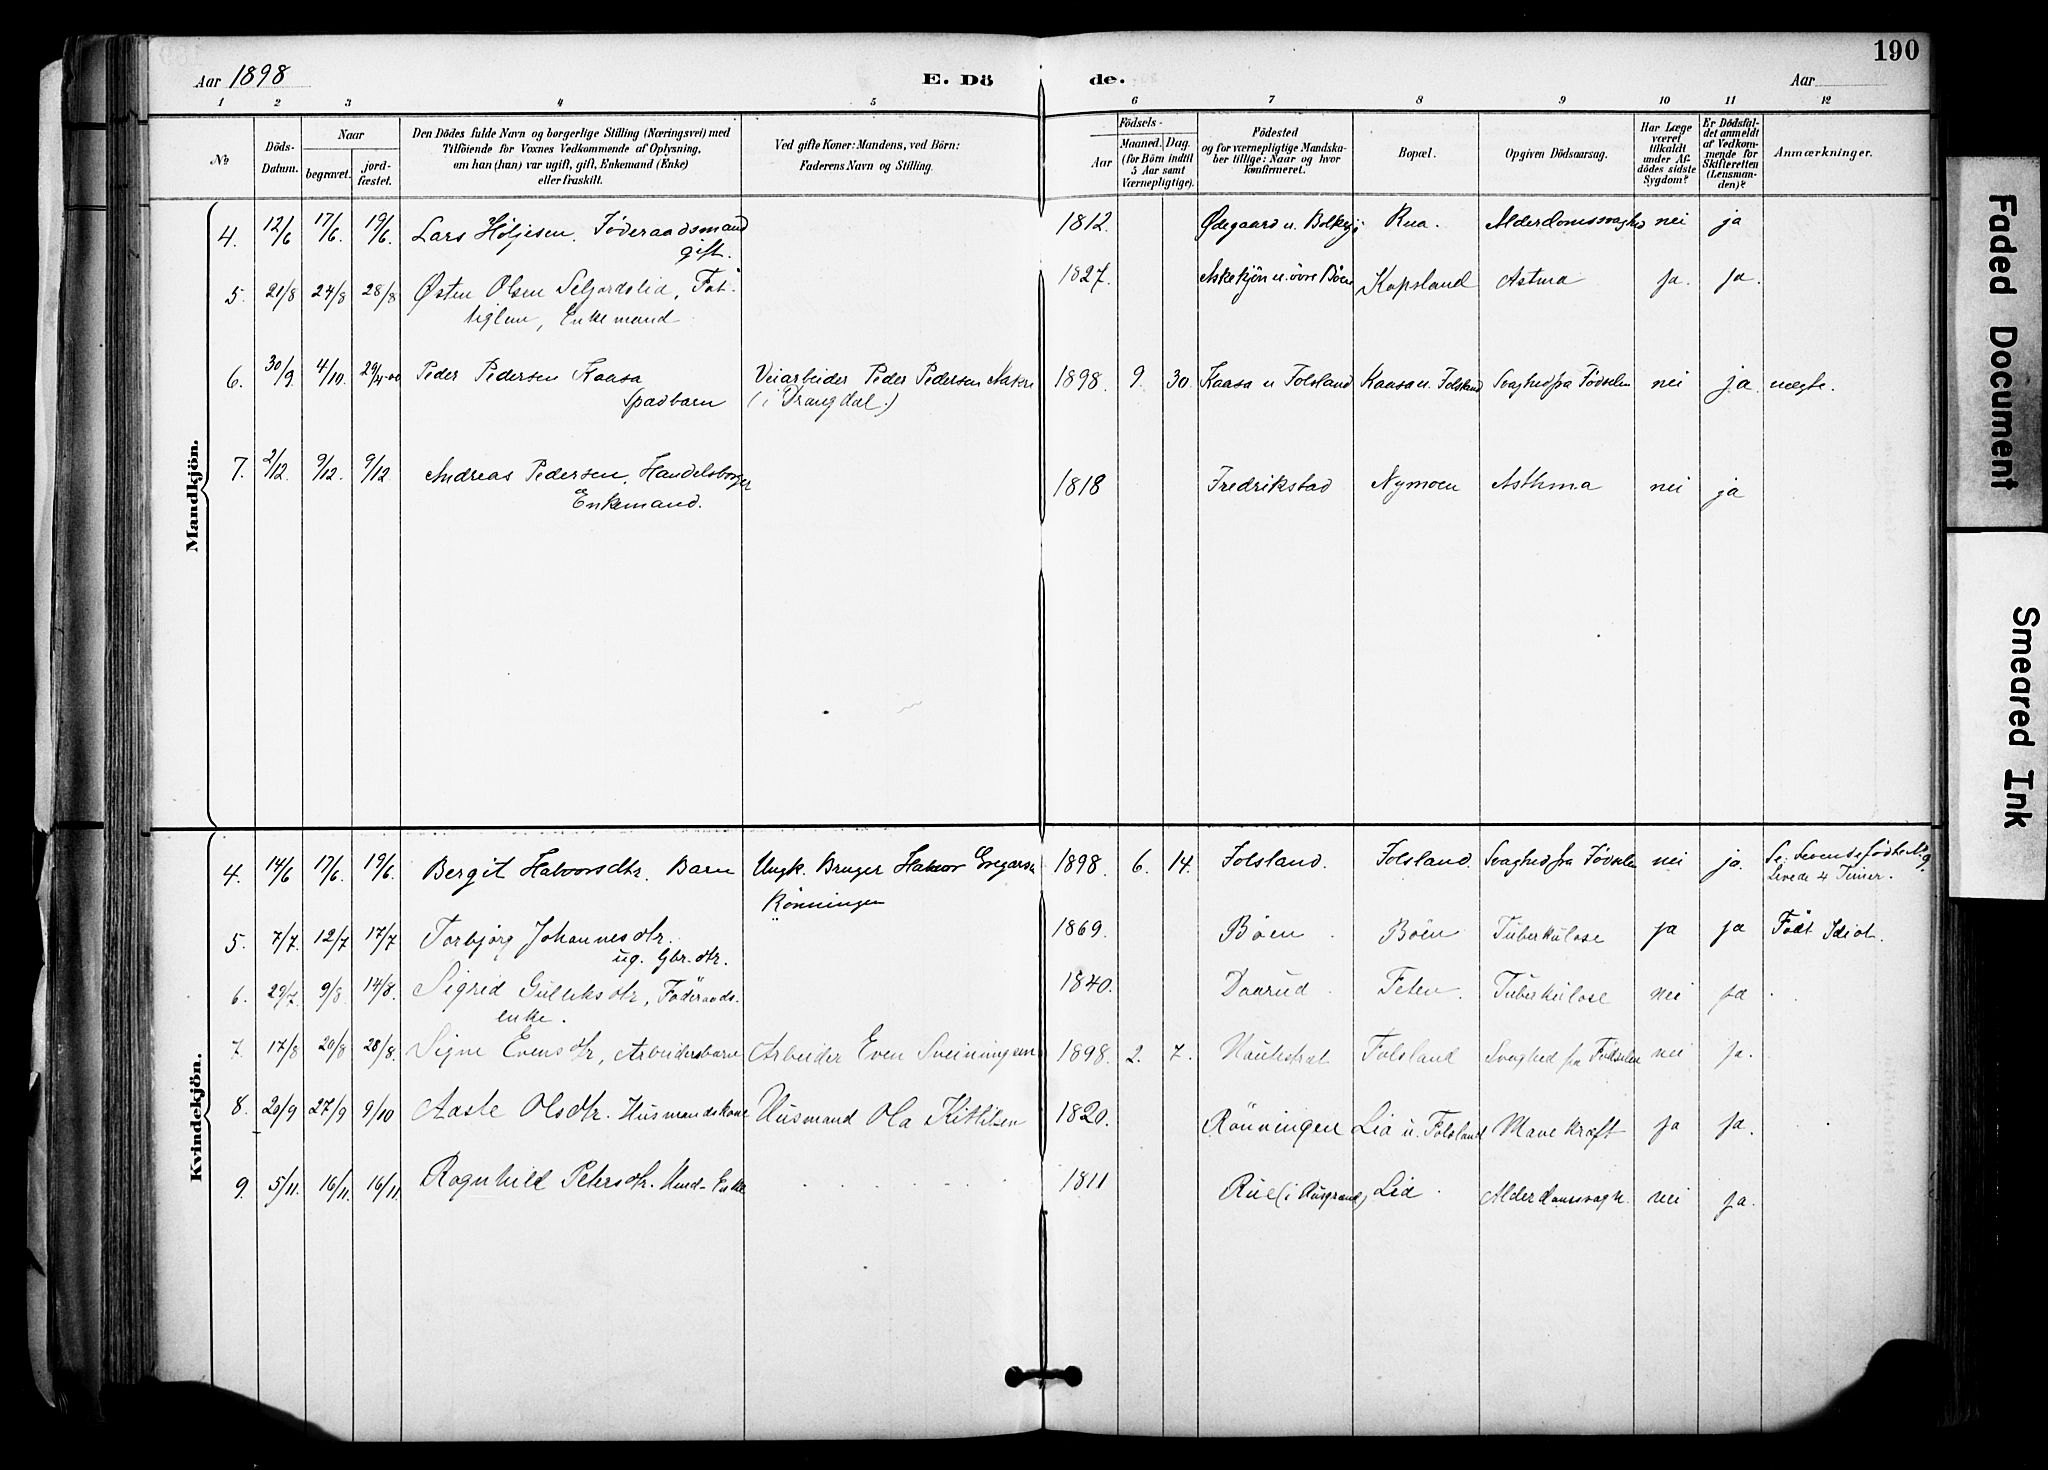 190
Aar 1898
E. Dö
de.
Aar
1 2 3 4 5 6 7 8 9 10 11 12
No
Döds-
Datum.
Naar
begravet.
jord-
fæstet.
Den Dödes fulde Navn og borgerlige Stilling (Næringsvei) med
Tilföiende for Voxnes Vedkommende af Oplysning,
om han (han) var ugift, gift, Enkemand (Enke)
eller fraskilt.
Ved gifte Koner: Mandens, ved Börn:
Faderens Navn og Stilling.
Födsels-
Aar
Maaned. Dag.
(for Börn indtil
5 Aar samt
Værnepligtige).
Födested
og for værnepligtige Mandska-
ber tillige: Naar og hvor
konfirmeret.
Bopæl.
Opgiven Dödsaarsag.
Har Læge
været
tilkaldt
under Af-
dödes sidste
Sygdom?
Er Dödsfal-
det anmeldt
af Vedkom-
mende for
Skifteretten
(Lensman-
den)?
Anmærkninger.
Mandkjön.
4. 12/6 17/6. 19/6. Lars Höljesen. Föderaadsmand 1812. Ødegaard u. Bolkesjö Rua. Alderdomssvaghed nei ja
gift.
5. 21/8 24/8 28/8 Østen Olsen Seljordslid, 1827. u. övre Böen Kopsland Astma ja. ja.
Enkemand
6. 30/9 4/10. 29/4-00 Peder Pedersen Kaasa Veiarbeider Peder Pedersen 1898 9. 30. Kaasa u Folsland Kaasa u. Folsland Svaghed fra Födselen nei ja
Spædbarn (i Drangdal.)
7. 2/12. 9/12. 9/12 Andreas Pedersen, Handelsborger 1818 Fredrikstad Nymoen Asthma nei ja
Enkemand.
Kvindekjön.
4. 14/6 17/6. 19/6. Bergit Halvorsdtr. Barn Ungk. Bruger Halvor Gregarsen 1898 6. 14. Folsland. Folsland. Svaghed fra Födselen nei ja. Se: Levendefödte No 9
Rönningen Levede 4 Timer.
5. 7/7. 12/7 17/7 Torbjörg Johannesdtr. 1869. Böen. Böen Tuberkulose ja ja Födt Idiot.
ug. Gbr. dtr.
6. 29/7. 9/8 14/8. Sigrid Gulleksdtr, Föderaads- 1840. Daarud. Feten. Tuberkulose nei ja
enke.
7. 17/8 20/8 28/8. Signe Evensdtr, Arbeidersbarn Arbeider Even Sveinungsen 1898. 2. 7. Folsland Svaghed fra Födselen nei ja.
8. 20/9 27/9 9/10 Aaste Olsdtr. Husmandskone Husmand Ola Kittilsen 1820. Rönningen Lia u. Folsland Mavekræft ja ja.
9. 5/11. 16/11. 16/11 Ragnhild Petersdtr. Husd- Enke 1811 Rue (i Rusgrand) Lia. Alderdomssvagh. nei ja.
Faded Document
Smeared Ink